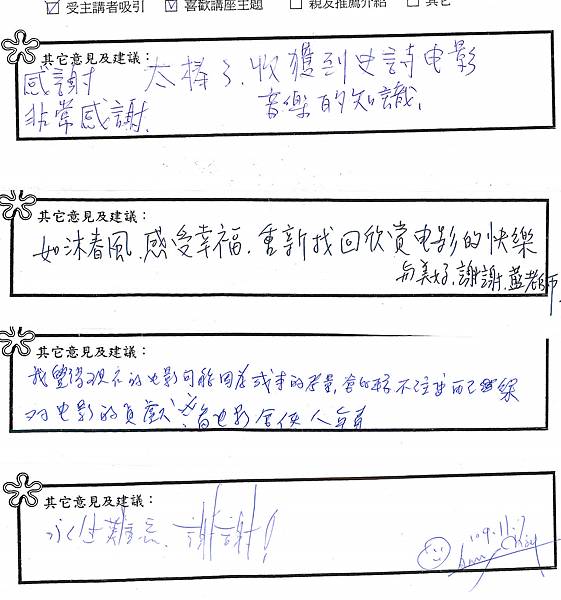 ☑ 受主講者吸引 ☑ 喜歡講座主題 ☐ 親友推薦介紹 ☐ 其它
其它意見及建議：
感謝 太棒了，收獲到史詩电影
非常感謝， 音樂的知識，
其它意見及建議：
如沐春風，感受幸福，重新找回欣賞电影的快樂
与美好，謝謝，藍老師，
其它意見及建議：
我覺得現在的电影可能因為
对电影的喜歡，看电影會使人
其它意見及建議：
永生難忘，謝謝！
109.11.7